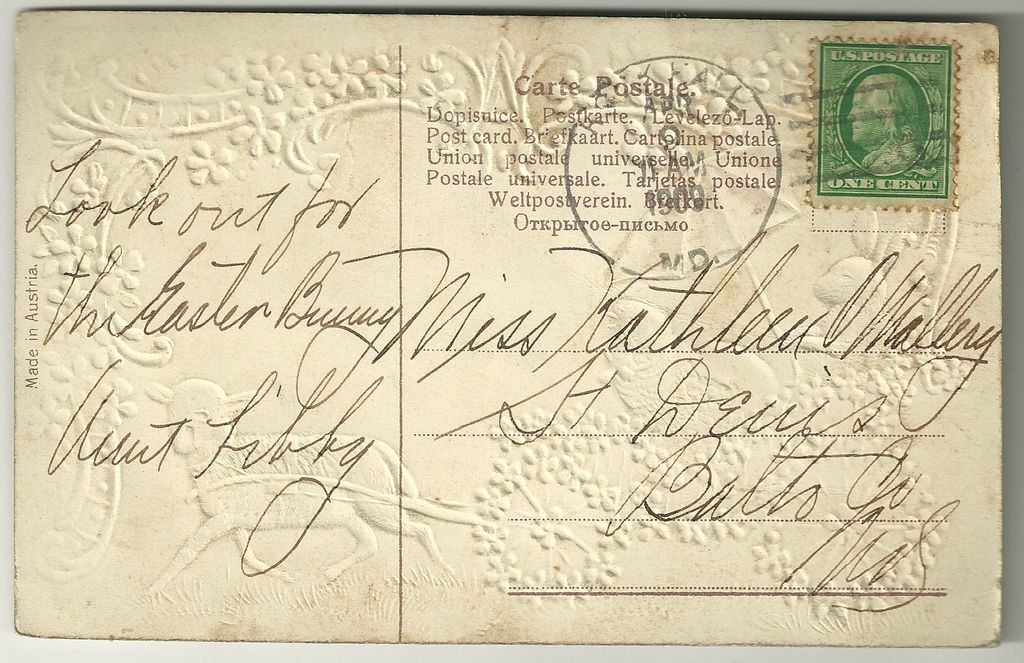 Carte Postale.
Dopisnice. Postkarte. Levelező-Lap.
Post card. Briefkaart. Cartolina postale.
Union postale universelle. Unione
Postale universale. Tarjetas postale
Weltpostverein. Brefkort.
Открытое-письмо
HALL
APR
9
11 AM
1909
MD.
U.S. POSTAGE
ONE CENT
Look out for
the Easter Bunny
Aunt Libby
Miss Kathleen O'Mallery
St Denis
Balto Co
Md
Made in Austria.